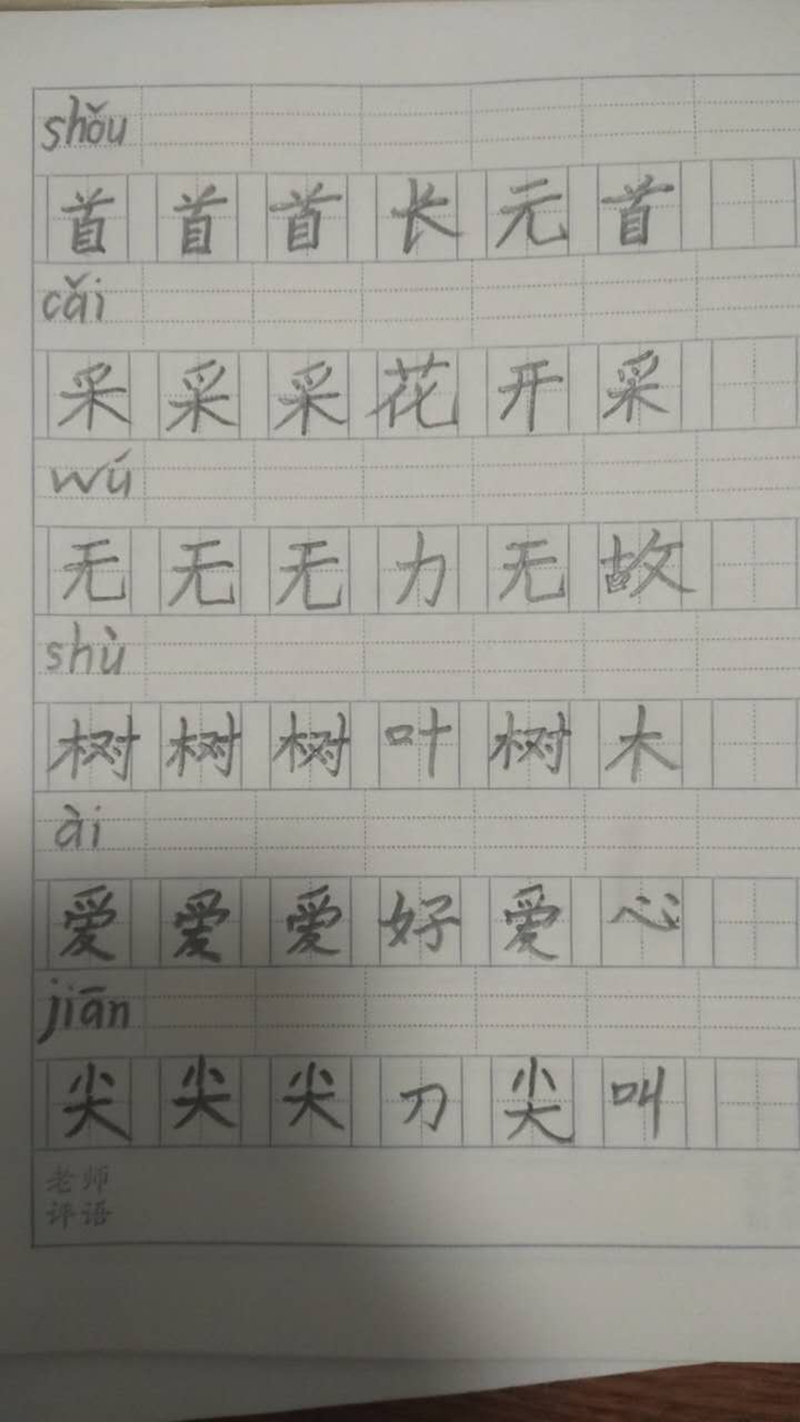 shǒu
首首首长元首
cǎi
采采采花开采
wú
无无无力无故
shù
树树树叶树木
ài
爱爱爱好爱心
jiān
尖尖尖刀尖叫
老师
评语